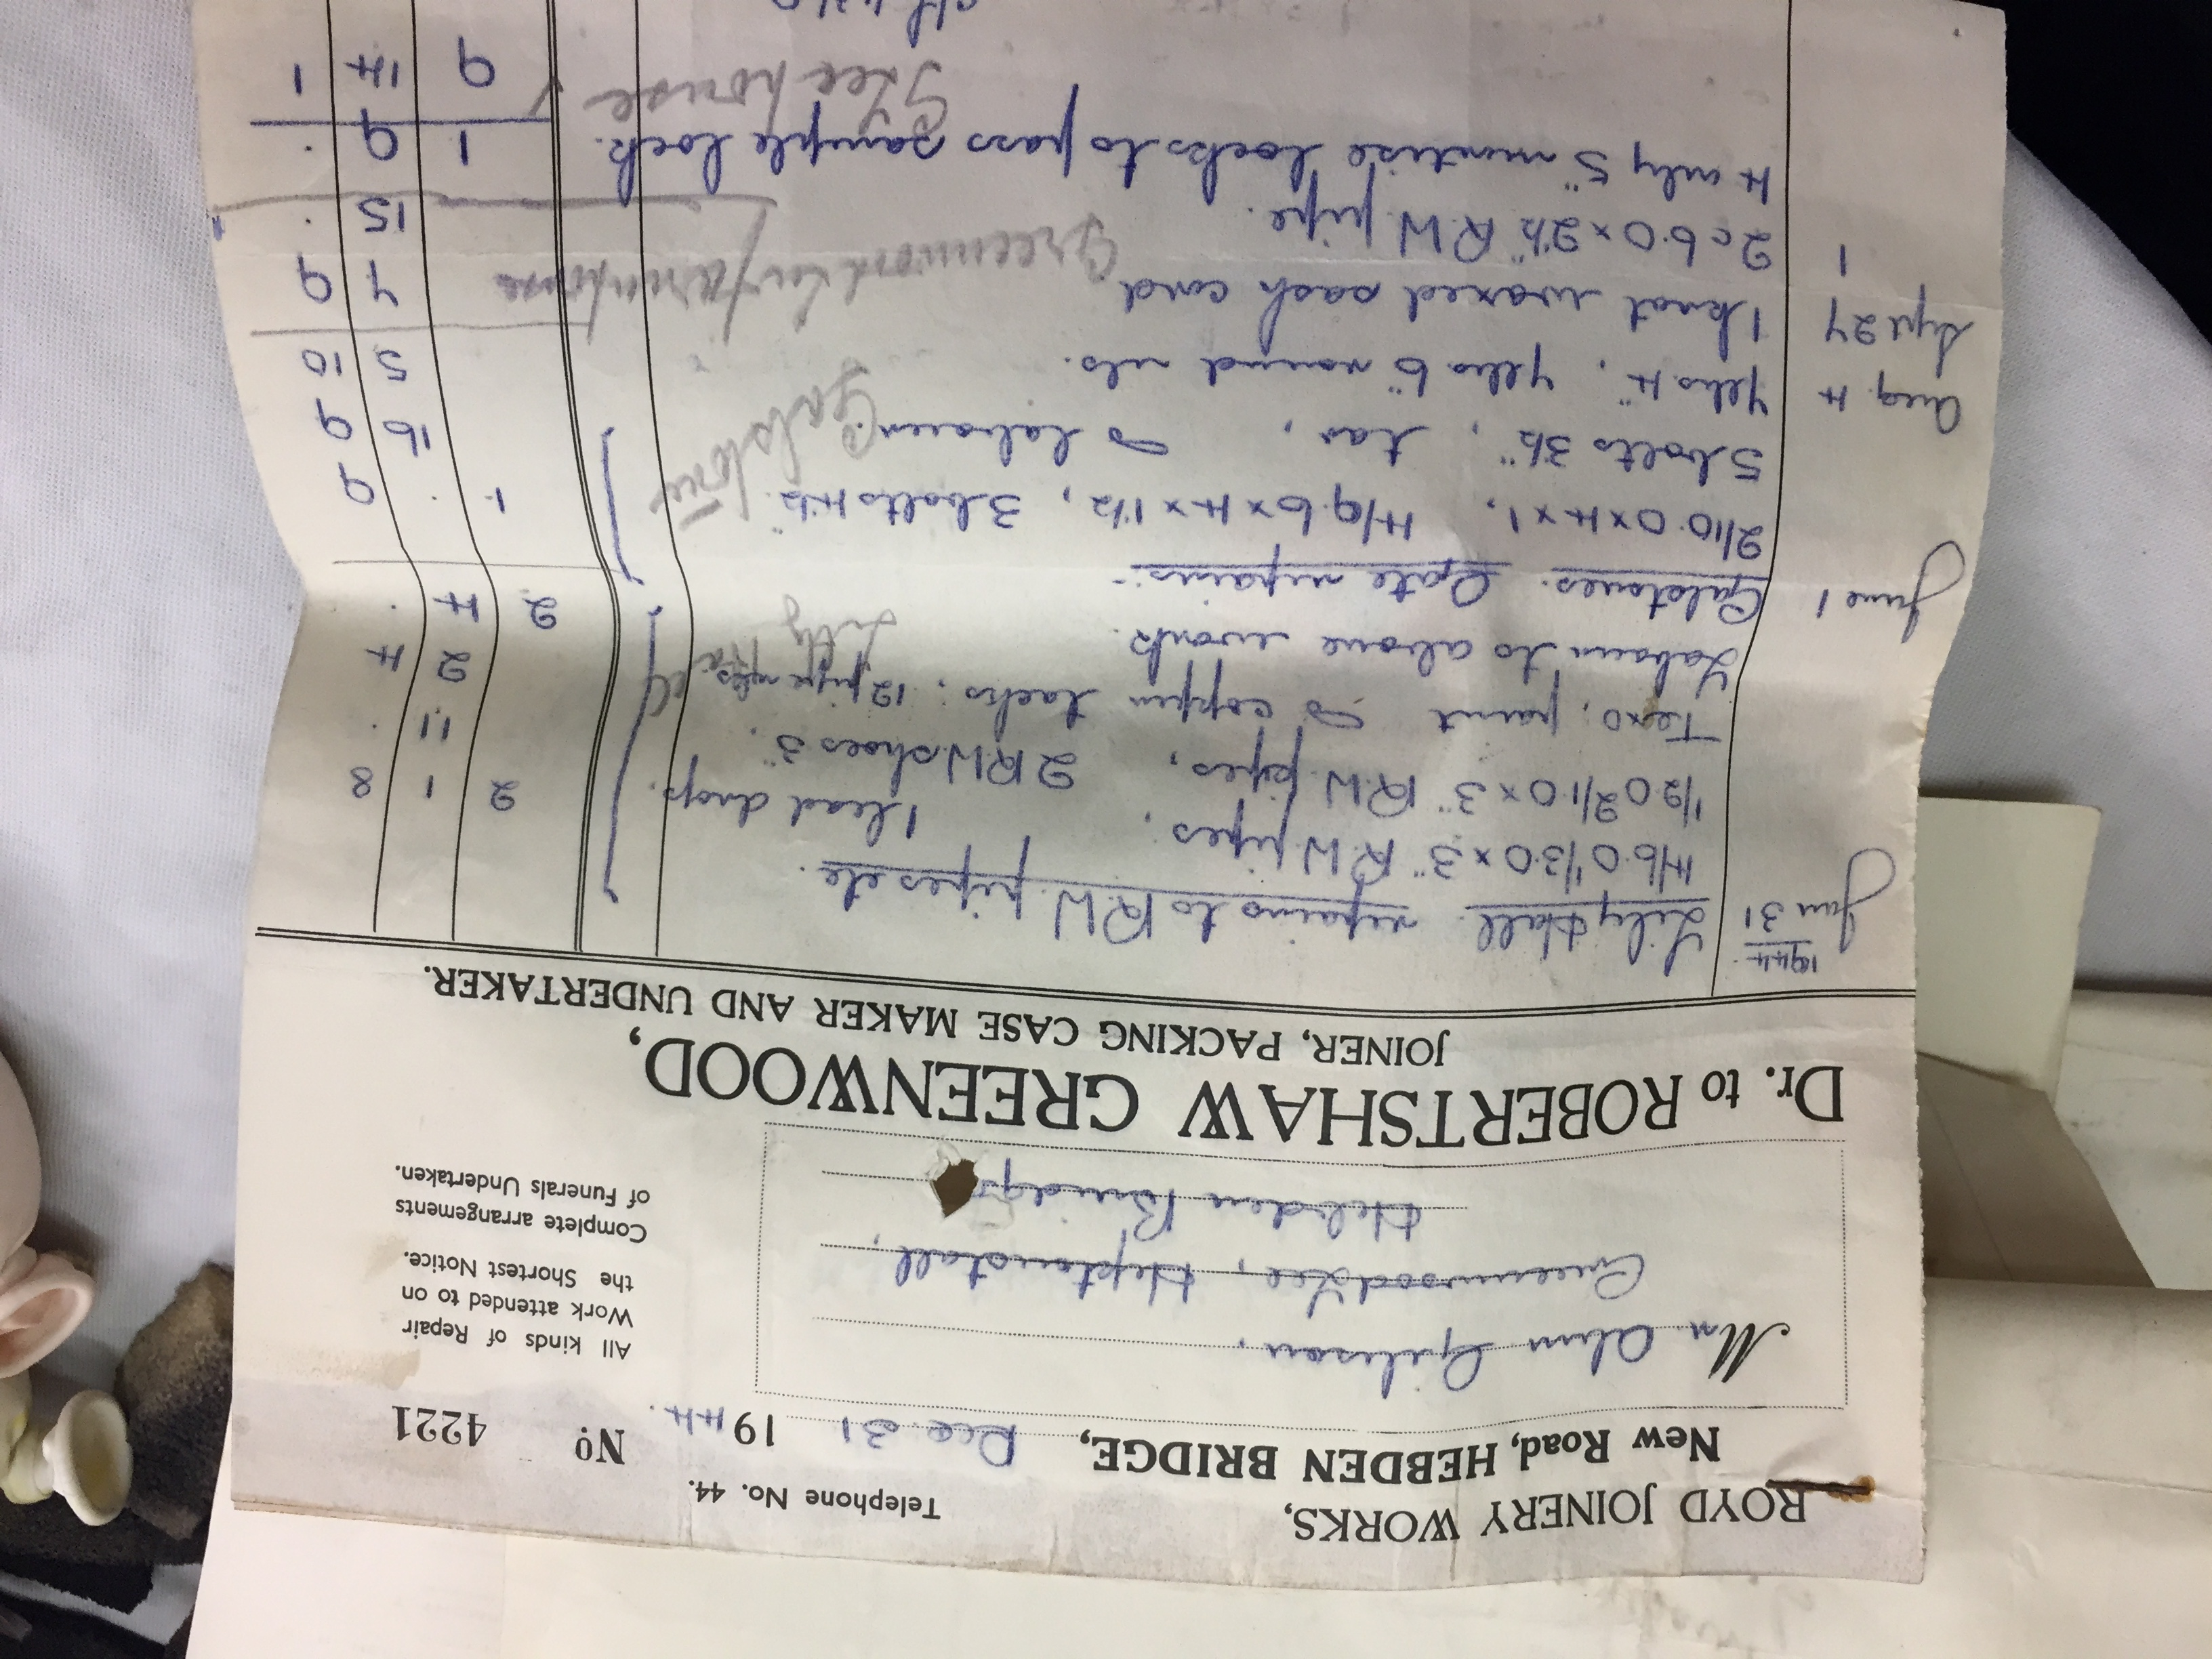 ROYD JOINERY WORKS,
Telephone No. 44.
New Road, HEBDEN BRIDGE, Dec 31 1944. No 4221
Mr Alun Gibson,
Greenwood Lee, Heptonstall,
Hebden Bridge
All kinds of Repair
Work attended to on
the Shortest Notice.
Complete arrangements
of Funerals Undertaken.
Dr. to ROBERTSHAW GREENWOOD,
JOINER, PACKING CASE MAKER AND UNDERTAKER.
1944
Jan 31 Lily Hall. repairs to R.W. pipes etc.
4/6.0 1/3.0 x 3" R.W. pipes, 1 lead drop. 2 1 8
1/2.0 2/1.0 x 3" R.W. pipes, 2 R.W. shoes 3", 11 .
Texo, paint & copper tacks, 12 pipe nails. 2 4
Labour to above work. 2 4 .
Lilly Hall
June 1 Galstones. Gate repairs:-
2/10.0 x 4 x 1, 4/9.6 x 4 x 1 1/2, 3 bolts 4 1/2" 1 . 9
5 bolts 3 1/2", tar, & labour 16 9
Galstone
Aug 4 7lbs 4", 7lbs 6" round nls. 5 10
Sept 27 1 knot waxed sash cord 7 9
1 2 c 6.0 x 2 1/2" R.W. pipe. 15 .
Greenwood Lee farmhouse
4 only 5" mortise locks to pass sample lock. 1 9 .
Lee house
9 14 1